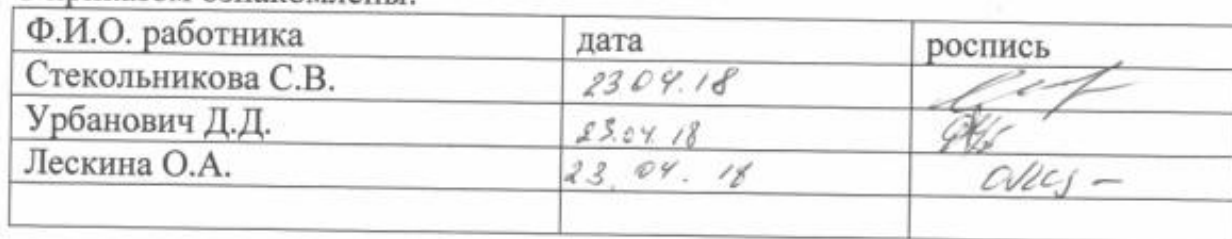 ознакомлены:
Ф.И.О. работника дата роспись
Стекольникова С.В. 23.04.18
Урбанович Д.Д. 23.04.18
Лескина О.А. 23.04.18